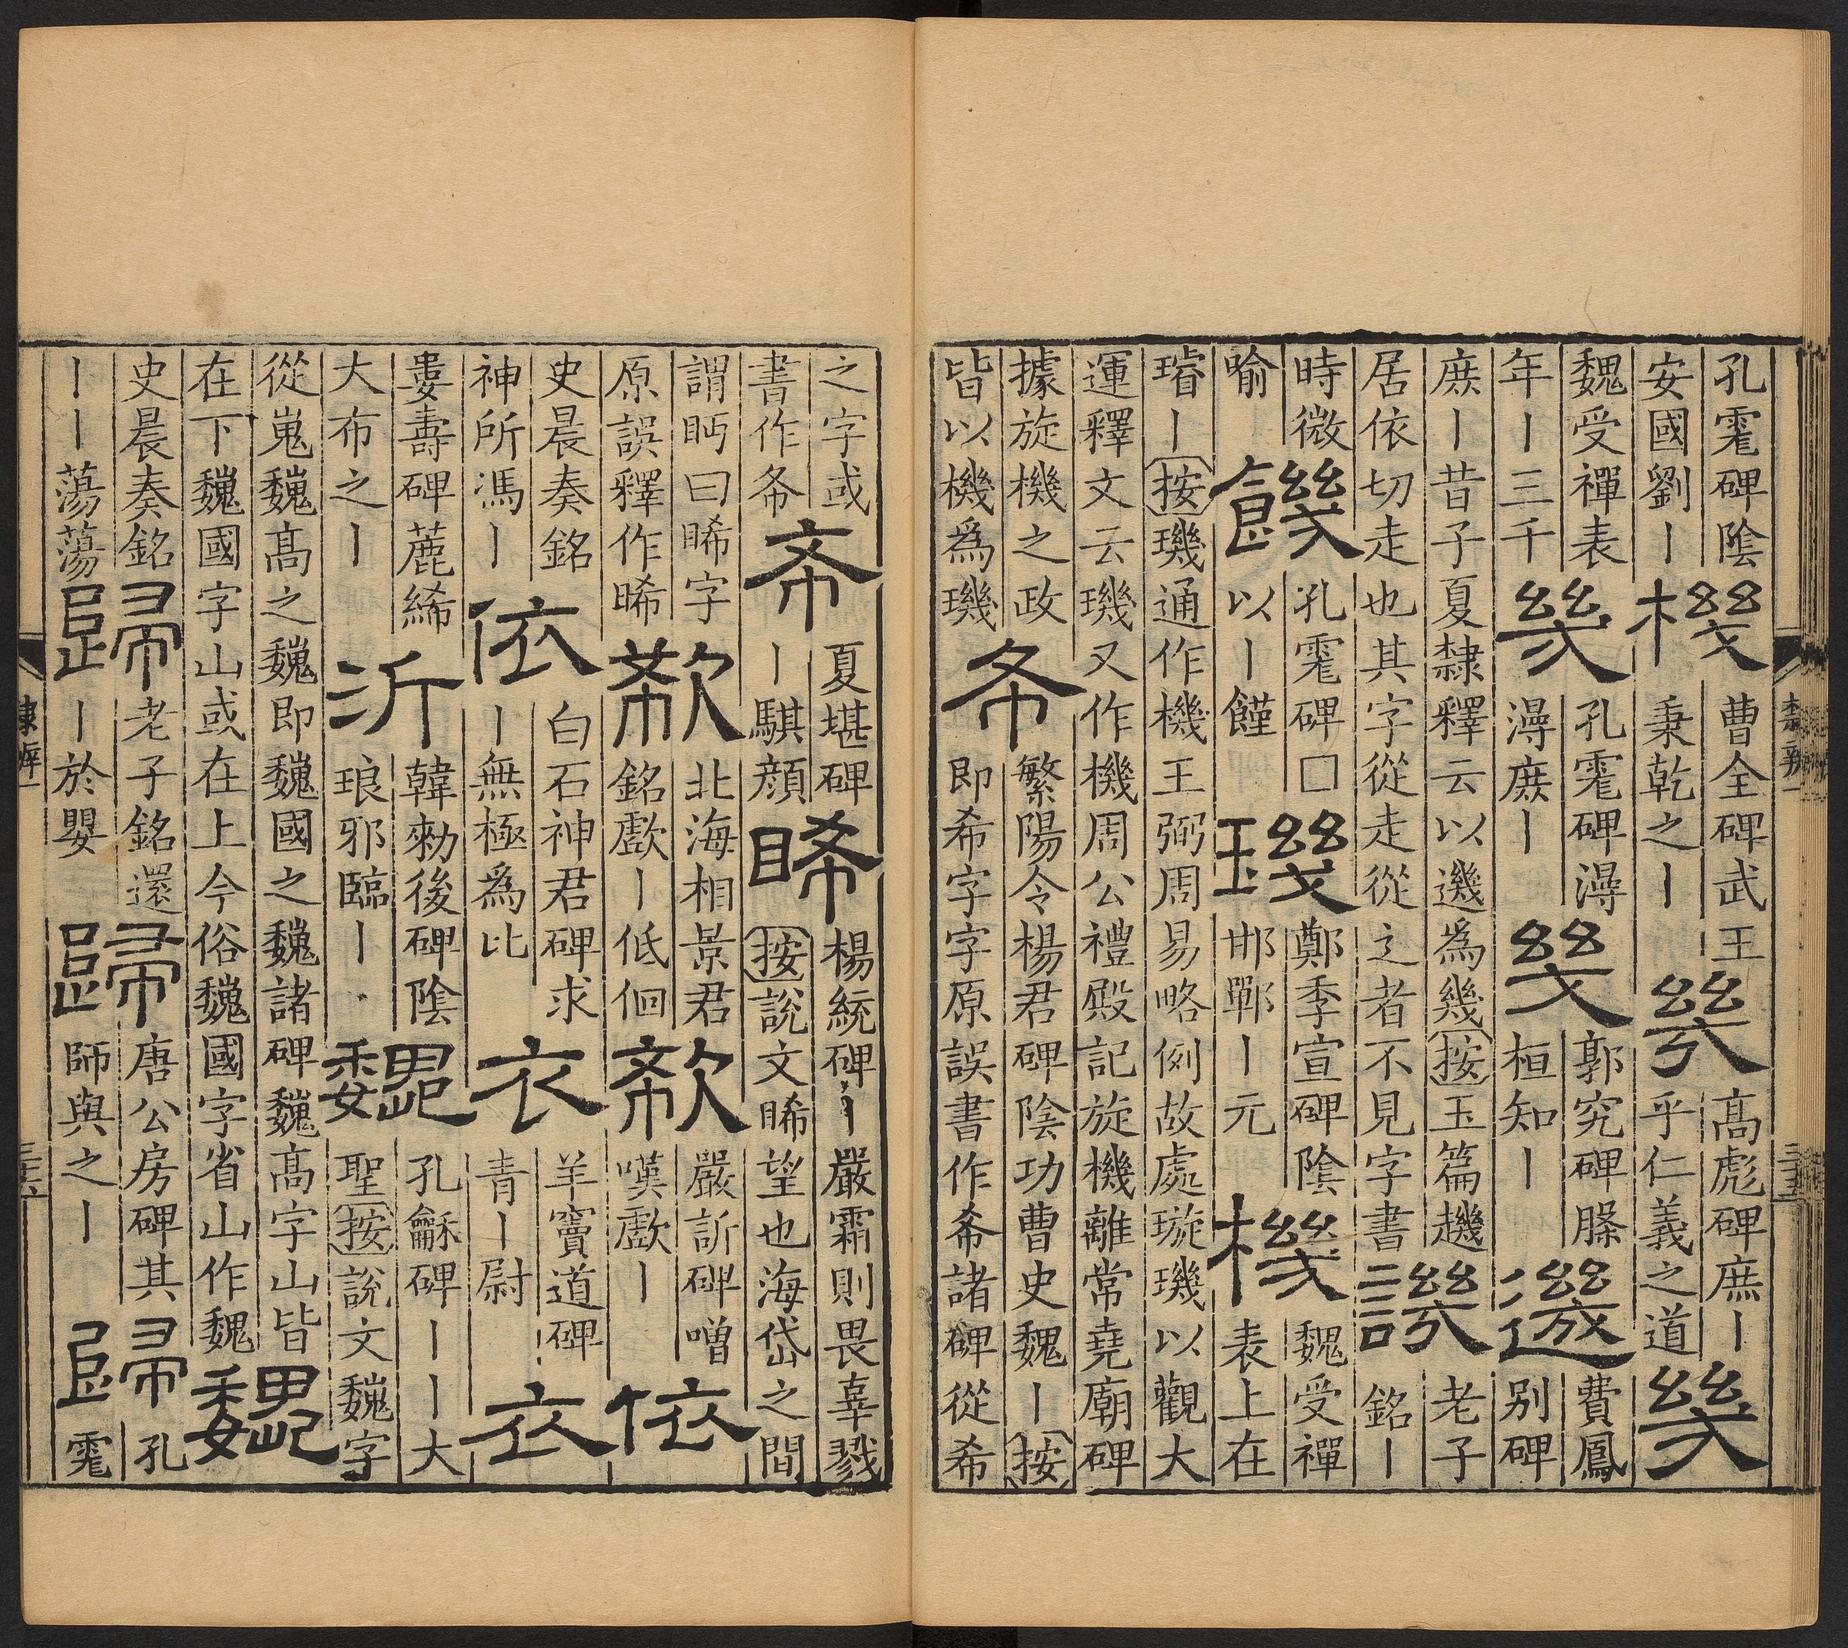 孔碑陰
安國劉丨
機
曹全碑武王
秉乾之丨
幾
高彪碑庶丨
乎仁義之道
幾
魏受禪表
年丨三千
幾
孔碑淂
淂庶丨
幾
郭究碑
桓知丨
𨘢
費鳳
別碑
老子
銘丨
庶丨昔子夏隸釋云以𨘢為幾按玉篇𧽈
居依切走也其字從走從辶者不見字書
譏
時微
喻
饑
孔碑□
以丨饉
璣
鄭季宣碑陰
邯鄲丨元
機
魏受禪
表上在
璿丨按璣通作機王弼周易略例故處璇璣以觀大
運釋文云璣又作機周公禮殿記旋機離常堯廟碑
據旋機之政
皆以機為璣
希
繁陽令楊君碑陰功曹史魏丨按
即希字字原誤書作𢁫諸碑從希
隸辨一
三十五
之字或
書作𢁫
希
夏堪碑
丨騏顏
睎
楊統碑丨嚴霜則畏辜戮
按說文睎望也海岱之間
謂眄曰睎字
原誤釋作晞
欷
北海相景君
銘歔丨低佪
欷
嚴訢碑噌
嘆歔丨
依
史晨奏銘
神所馮丨
依
白石神君碑求
丨無極為比
衣
羊竇道碑
青丨尉
衣
婁壽碑麄絺
大布之丨
沂
韓勑後碑陰
琅邪臨丨
巍
孔龢碑丨丨大
聖按說文巍字
從嵬巍高之巍即巍國之巍諸碑巍高字山皆
在下巍國字山或在上今俗巍國字省山作魏
巍
史晨奏銘
丨丨蕩蕩
歸
老子銘還
丨於嬰
歸
唐公房碑其
師與之丨
歸
孔
隸辨一
三十六